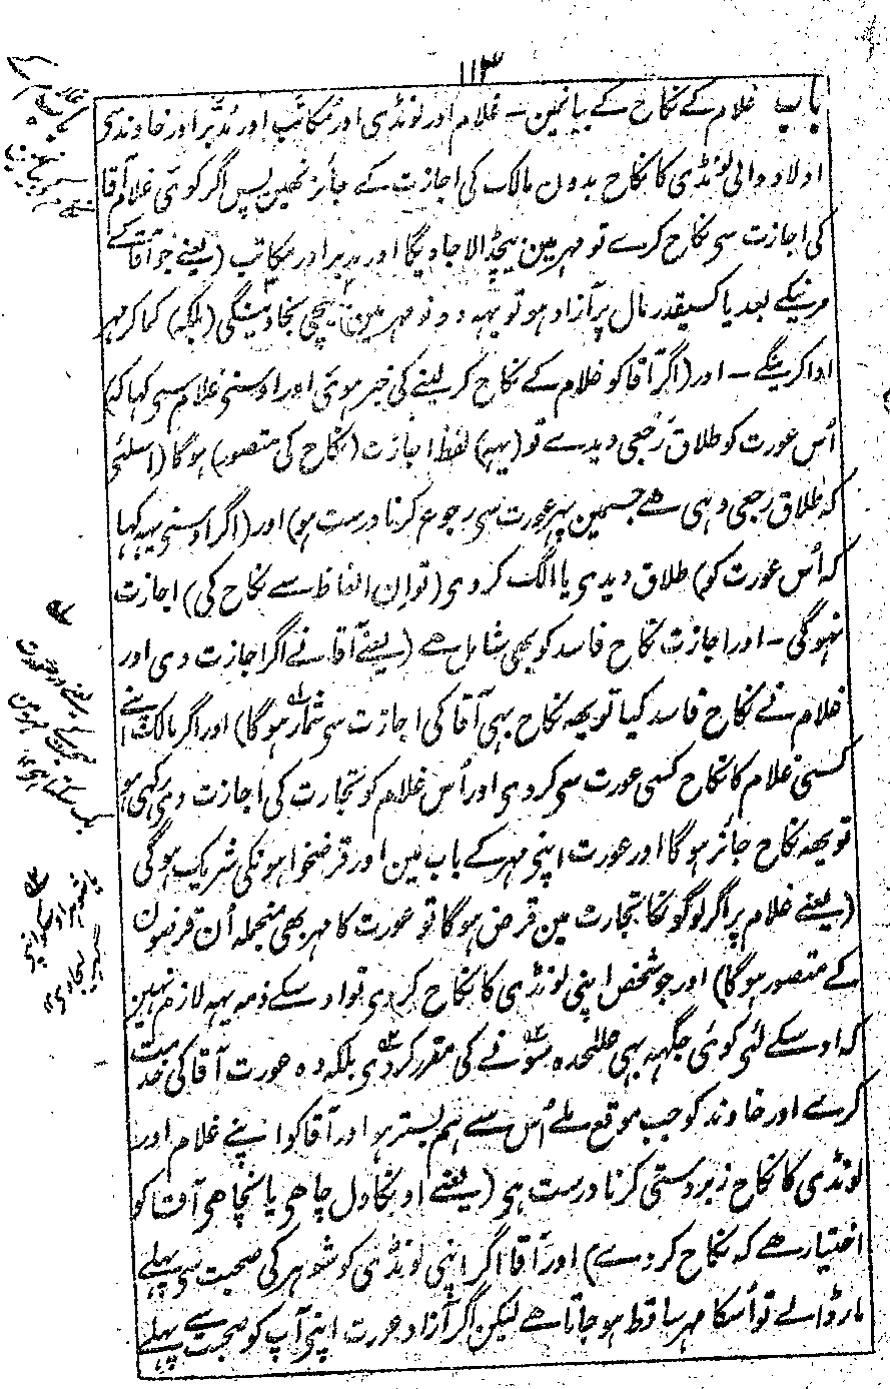 ۱۱۳
باب غلام کے نکاح کے بیانمین۔ غلام اور لونڈی اور مُکاتَب اور مُدَبَّر اور خاوندسی
اولاد والی لونڈی کا نکاح بدون مالک کی اجازت کے جائز نہین پس اگر کوئی غلام آقا
کی اجازت سی نکاح کرے تو مہر مین بیچڈالا جاویگا اور مدبر اور مکاتب (یعنے جو آقا کے
مرنیکے بعد یا کسیقدر مال پر آزاد ہو تو یہہ دونو مہر مین نہ بیچی بخاوینگی (بلکہ) کما کر مہر
ادا کرینگے۔ اور (اگر آقا کو غلام کے نکاح کر لینے کی خبر ہوئی اور اوسنی غلام سی کہا کہ)
اُس عورت کو طلاق رجعی دیدے تو (یہہ) لفظ اجازت (نکاح کی متصور) ہوگا (اسلئی
کہ طلاق رجعی وہی ہے جسمین پہر عورت سی رجوع کرنا درست ہو) اور (اگر اوسنی یہہ کہا
کہ اُس عورت کو) طلاق دیدی یا الگ کر دی (تو اِن الفاظ سے نکاح کی) اجازت
نہوگی۔ اور اجازت نکاح فاسد کو بھی شامل ہے (یعنے آقا نے اگر اجازت دی اور
غلام نے نکاح فاسد کیا تو یہہ نکاح بہی آقا کی اجازت سی شمار ہوگا) اور اگر مالک اپنے
کسی غلام کا نکاح کسی عورت سی کر دی اور اُس غلام کو تجارت کی اجازت دی رکہی ہو
تو یہہ نکاح جائز ہوگا اور عورت اپنی مہر کے باب مین اور قرضخواہونکی شریک ہوگی
(یعنے غلام پر اگر لوگونکا تجارت مین قرض ہوگا تو عورت کا مہر بھی منجملہ اُن قرضون
کے متصور ہوگا) اور جو شخص اپنی لونڈی کا نکاح کر دی تو اوسکے ذمہ یہہ لازم نہین
کہ اوسکے لئی کوئی جگہہ بہی علٰحدہ سونے کی مقرر کر دی بلکہ وہ عورت آقا کی خدمت
کرے اور خاوند کو جب موقع ملے اُس سے ہم بستر ہو اور آقا کو اپنے غلام اور
لونڈی کا نکاح زبردستی کرنا درست ہی (یعنے اونکا دل چاہی یا نچاہی آقا کو
اختیار ہے کہ نکاح کر دے) اور آقا اگر اپنی لونڈی کو شوہر کی صحبت سی پہلے
مار ڈالے تو اُسکا مہر ساقط ہو جاتا ہے لیکن اگر آزاد عورت اپنی آپ کو صحبت سے پہلے